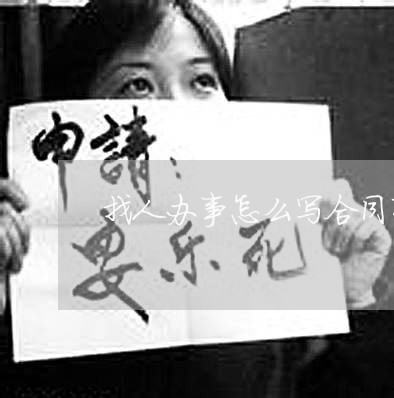 申請：
找人办事怎么写合同
安乐死